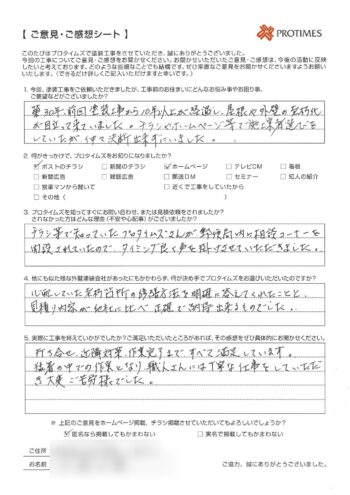 【 ご意見・ご感想シート 】
PROTIMES
このたびはプロタイムズで塗装工事をさせていただき、誠にありがとうございました。
今回の工事についてご意見・ご感想をお聞かせください。お聞かせいただいたご意見・ご感想は、今後の活動に反映
したいと考えております。どのような些細なことでも結構です。ぜひ率直なご意見をお聞かせくださいますようお願い
いたします。（できるだけ詳しくご記入いただけますと幸いです。）
1. 今回、塗装工事をご依頼いただきましたが、工事前のお住まいにどんなお悩み事やお困り事、
ご要望などがございましたか？
築30年、前回塗装工事から10年以上が経過し、屋根や外壁の劣化
が目立って来ていました。チラシやホームページ等で施工業者選びを
していたが、中々決断出来ずにいました。
2. 何がきっかけで、プロタイムズをお知りになりましたか？
☑ポストのチラシ □新聞のチラシ ☑ホームページ □テレビCM □看板
□新聞広告 □雑誌広告 □郵送DM □セミナー □知人の紹介
□営業マンから聞いて □近くで工事をしていたから
□その他（ ）
3. プロタイムズを知ってすぐにお問い合わせ、または見積依頼をされましたか？
されなかった方はどんな理由（不安や心配事）がございましたか？
チラシ等で知っていたプロタイムズさんが郵便局内に相談コーナーを
開設されていたので、タイミング良く声を掛けさせていただきました。
4. 他にも似た様な外壁塗装会社があったにもかかわらず、何が決め手でプロタイムズをお選びいただいたのですか？
心配していた劣化箇所の修繕方法を明確に答えてくれたことと、
見積り内容が他社に比べ正確で納得出来るものでした。
5. 実際に工事を終えていかがでしたか？ご満足いただいたところがあれば、その感想をぜひ具体的にお聞かせください。
打ち合せ、近隣対策、作業完了まですべて満足しています。
猛暑の中での作業となり職人さんには丁寧な仕事をしていただ
き大変ご苦労様でした。
※ 上記のご意見をホームページ掲載、チラシ掲載させていただいてもよろしいでしょうか？
☑匿名なら掲載してもかまわない □実名で掲載してもかまわない
ご住所
お名前
ご協力、誠にありがとうございました。